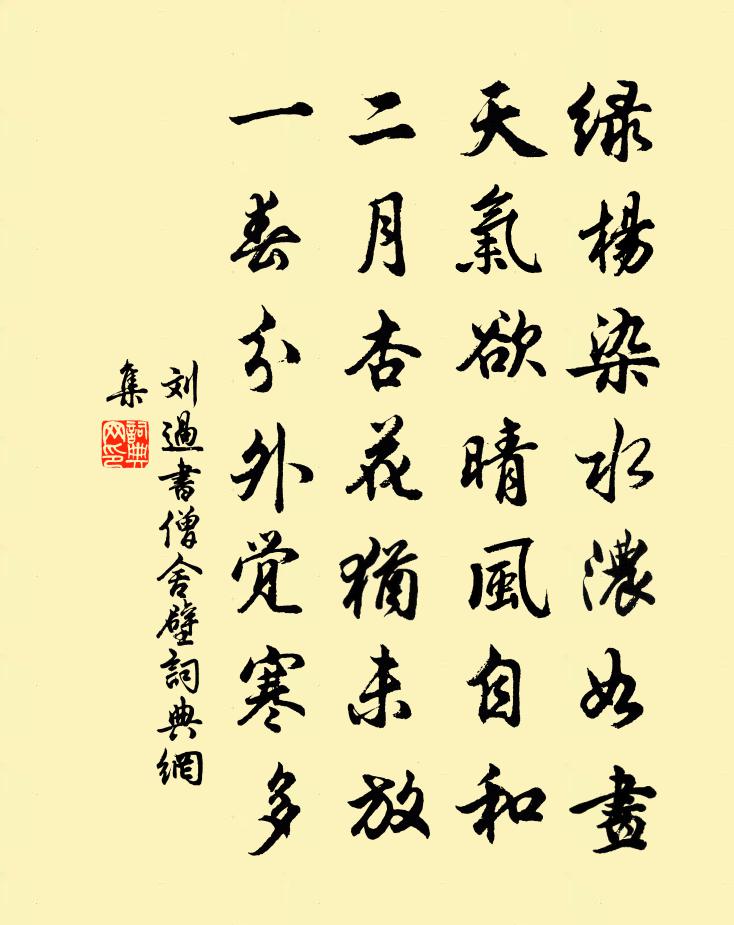 绿楊染水濃如畫
天氣欲晴風自和
二月杏花猶未放
一春分外觉寒多
刘過書僧舍壁詞典網
集
詞典
网印